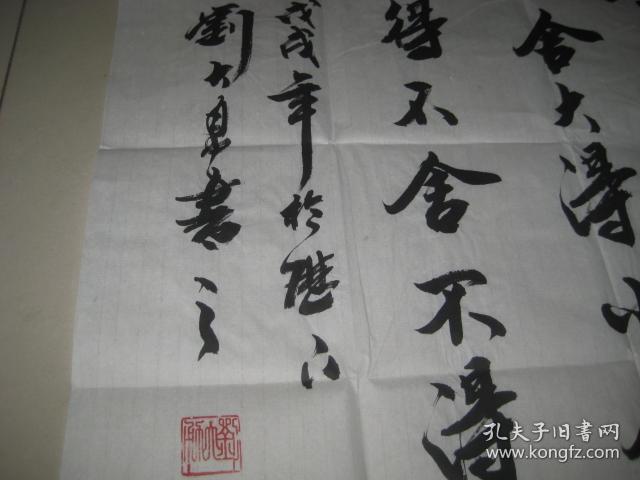 舍大得
得不舍不得
戊戌年於歷下
劉大泉書之
孔夫子旧书网
www.kongfz.com